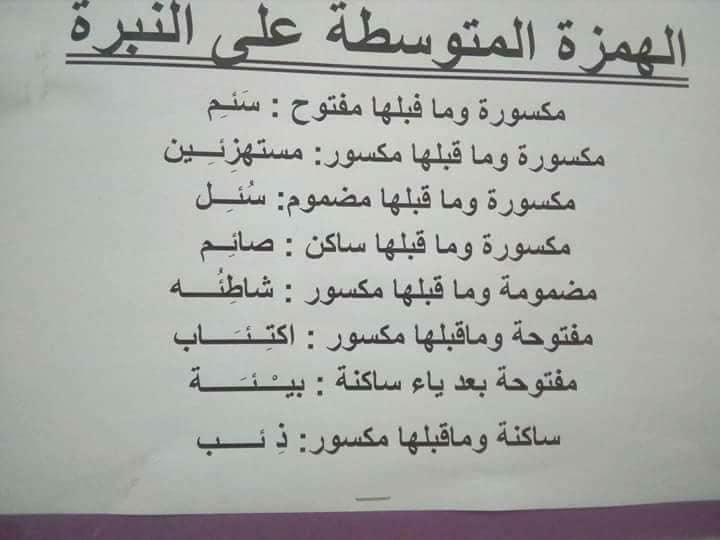 الهمزة المتوسطة على النبرة
مكسورة وما قبلها مفتوح : سَئِم
مكسورة وما قبلها مكسور: مستهزِئِين
مكسورة وما قبلها مضموم: سُئِل
مكسورة وما قبلها ساكن : صائِم
مضمومة وما قبلها مكسور : شاطِئُـــه
مفتوحة وماقبلها مكسور : اكتِـئَـــاب
مفتوحة بعد ياء ساكنة : بيـْـئَـــــة
ساكنة وماقبلها مكسور: ذِ ئـــب